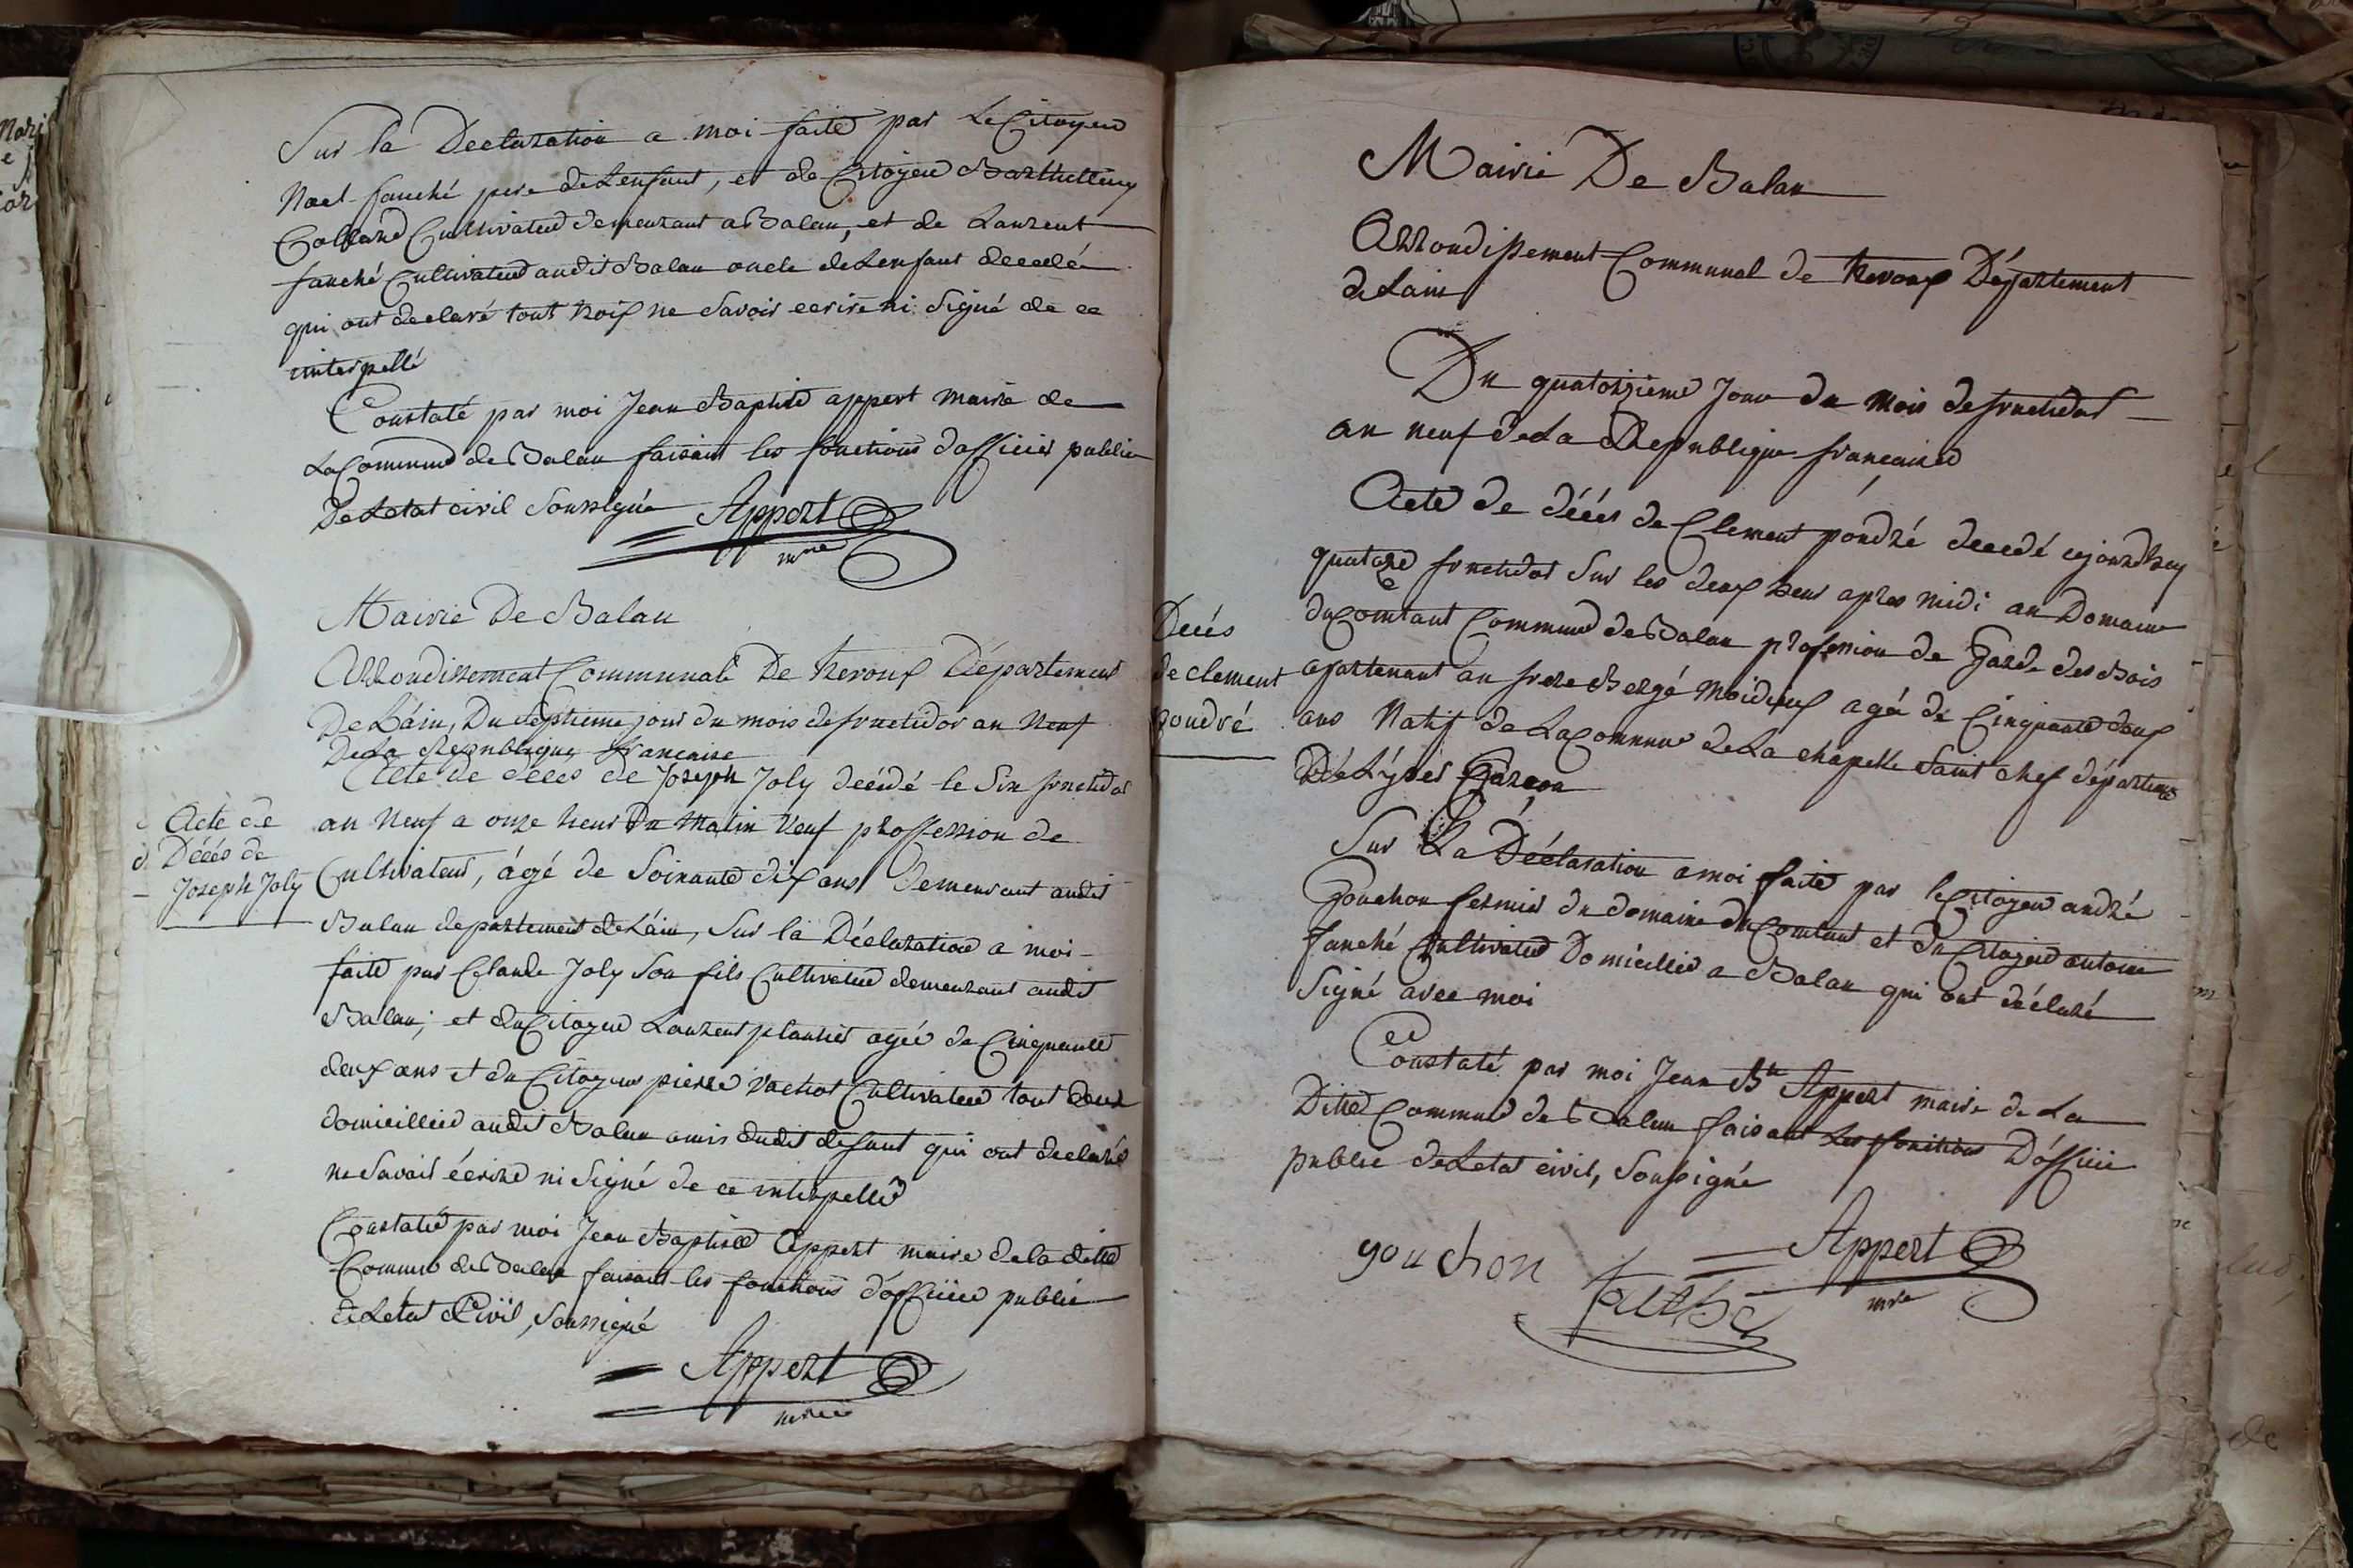 Sur la Declaration a moi faite par Le Citoyen
Noel fauché pere de Lenfant, et de Citoyen Barthellemy
Colland Cultivateur demeurant a Balan, et de Laurent
fauché Cultivateur audit Balan oncle de Lenfant decedé
qui ont declaré tout trois ne Savoir ecrire ni Signé de ce
interpellé
Constaté par moi Jean Baptiste appert maire de
La Commune de Balan faisant les fonctions dofficier public
De Letat civil Soussigné Appert
mre
Mairie De Balan
Arrondissement Communal De trevoux Département
De Láin, Du septieme jour du mois de fructidor an Neuf
De La Republique francaise
Acte de déces de Joseph Joly décédé le Six fructidor
an Neuf a onze heur du Matin Veuf proffession de
Cultivateur, ágé de Soixante dix ans demeurant audit
Balan departement de Láin, Sur la Déclaration a moi
faite par Claude Joly Son fils Cultivateur demeurant audit
Balan; et du Citoyen Laurent plantier agée de Cinquante
deux ans et du Citoyen pierre Vachot Cultivateur tout deux
domicillié audit Balan amis dudit defunt qui ont declaré
ne Savoir écrire ni Signé de ce interpellé
Constaté par moi Jean Baptiste Appert maire de la ditte
Commune de Balan faisant les fonctions dófficier public
de Letat Civil, Soussigné
Appert
mre
Acte de
Décés de
Joseph Joly
Mairie De Balan
Arrondissement Communal de trevoux Département
de Lain
Du quatorzieme Jour du Mois de fructidor
an neuf de La Republique francaise
Acte de décés de Clement poudré decedé cejourdhuy
quatorze fructidor Sur les deux heur apres midi au Domaine
du Comtant Commune de Balan profession de Garde des Bois
apartenant au frere Bergé Moidieux agé de Cinquante deux
ans Natif de La Commune de La chapelle Saint chef département
De Lýser Garcon
Sur La Déclaration a moi faite par le Citoyen andré
Gouchon fermier du domaine du Comtant et Du Citoyen antoine
fauché Cultivateur Domicillié a Balan qui ont déclaré
Signé avec moi
Constaté par moi Jean Bte Appert maire de La
Ditte Commune de Balan faisant Les fonctions Dófficie
public de Letat civil, Soussigné
Decés
de clement
poudré
gouchon
Appert
mre
fauché